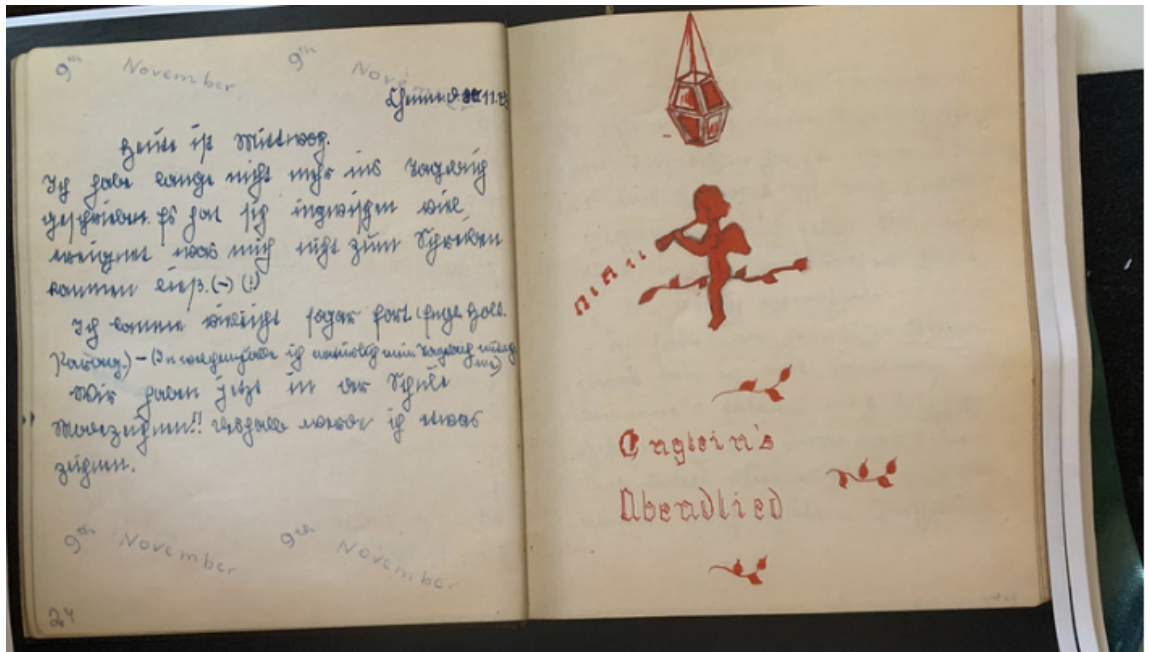 9th November 9th Nov
11.
Heute ist Mittwoch.
Ich habe lange nicht mehr ins Tagebuch
geschrieben. Es hat sich inzwischen viel
ereignet was mich nicht zum Schreiben
kommen ließ. (-) (!)
Ich komme vielleicht sogar fort (
) – (In welchem Falle ich natürlich mein Tagebuch
Wir haben jetzt in der Schule
Modezeichnen!! Deshalb werde ich etwas
zeichnen.
9th November 9th November
24
Englein's
Abendlied